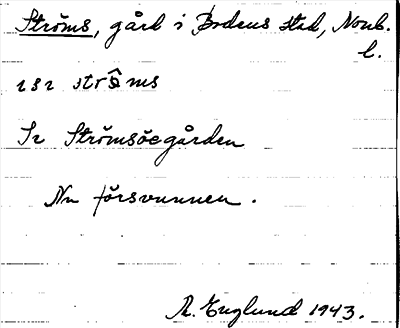 Ströms, gård i Bodens stad, Norrb.
l.
Se Strömsöegården
Nu försvunnen.
R. Englund 1943.